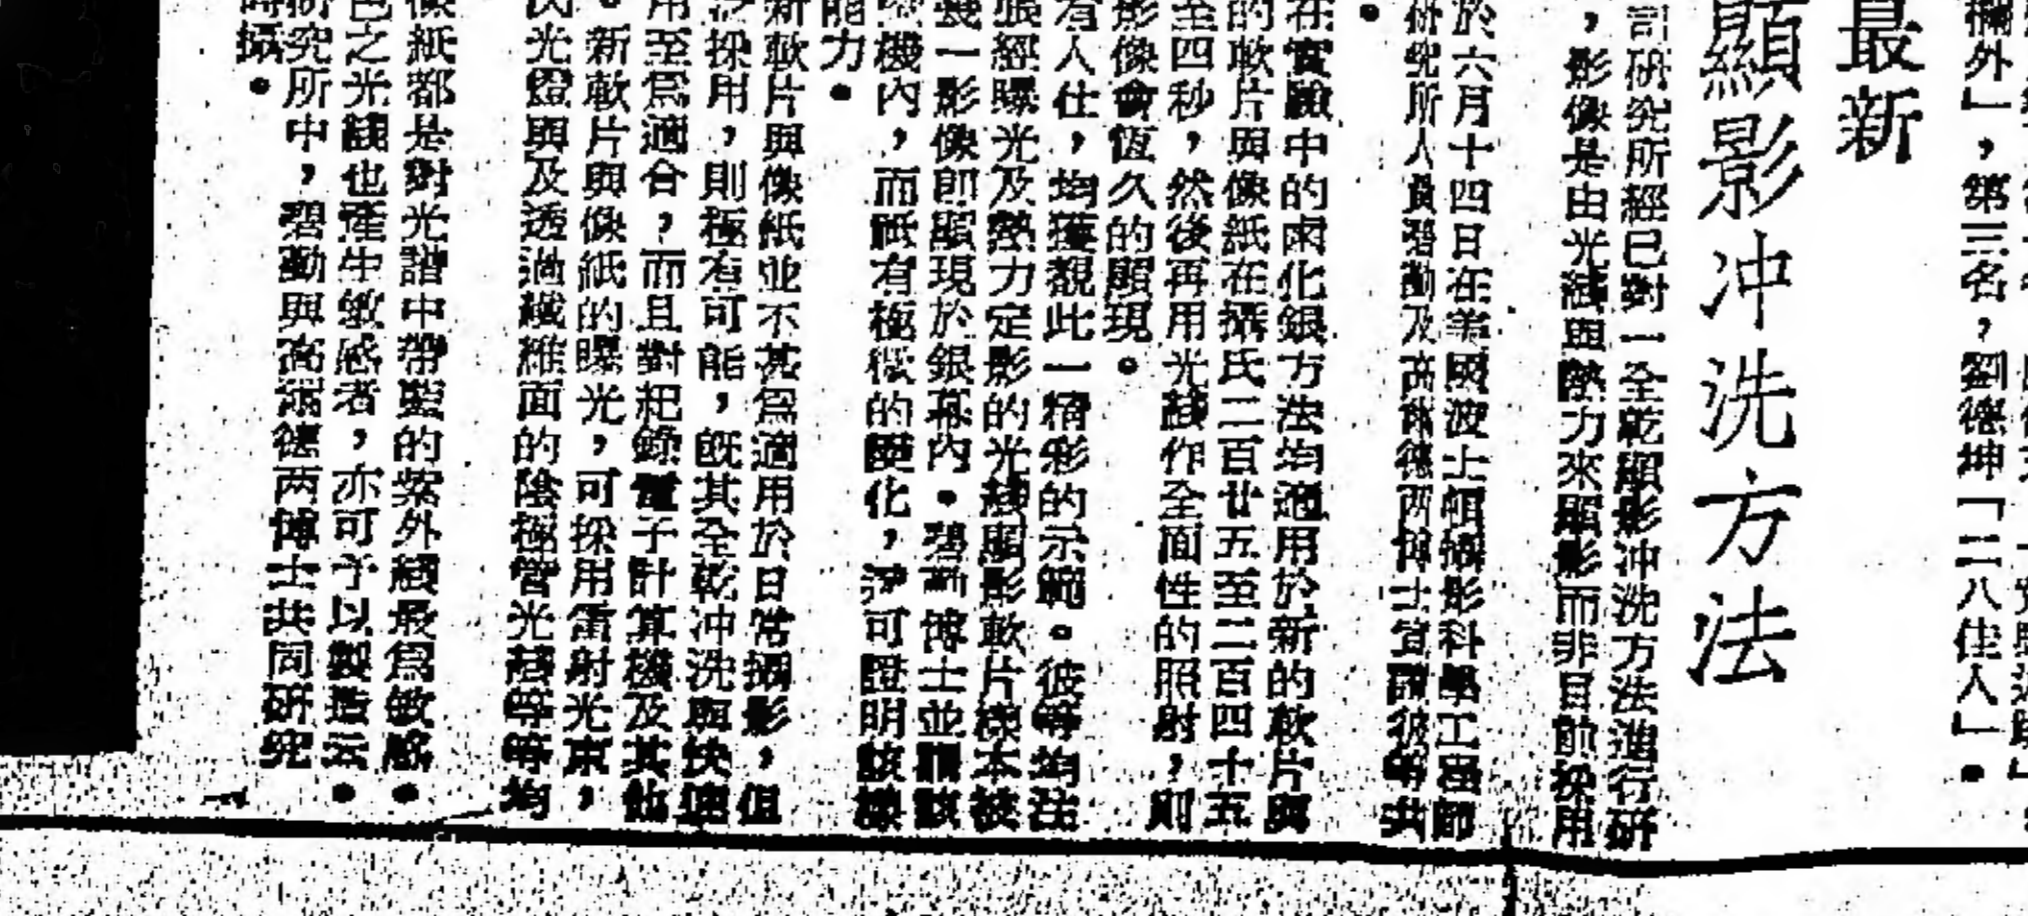 欄外」，第三名，劉德坤「二八佳人」。
最新
顯影冲洗方法
研究所經已對一全乾顯影冲洗方法進行研
，影像是由光綫與熱力來顯影而非目前採用
於六月十四日在美國波士頓攝影科學工程師
研究所人員碧勤及高爾德兩博士宣讀彼等共
。
在實驗中的鹵化銀方法均適用於新的軟片與
的軟片與像紙在攝氏二百廿五至二百四十五
至四秒，然後再用光綫作全面性的照射，則
影像會恆久的顯現。
有人仕，均獲覩此一精彩的示範。彼等均注
張經曝光及熱力定影的光綫顯影軟片樣本被
裝一影像即顯現於銀幕內。碧勤博士並謂該
機內，而祇有極微的變化，可證明該樣
能力。
新軟片與像紙並不甚爲適用於日常攝影，但
採用，則極有可能，旣其全乾冲洗與快速
用至爲適合，而且對紀錄電子計算機及其他
。新軟片與像紙的曝光，可採用雷射光束，
光燈與及透過纖維面的陰極管光綫等等均
像紙都是對光譜中帶藍的紫外綫最爲敏感。
色之光綫也產生敏感者，亦可予以製造云。
研究所中，碧勤與高爾德两博士共同研究
時攝。